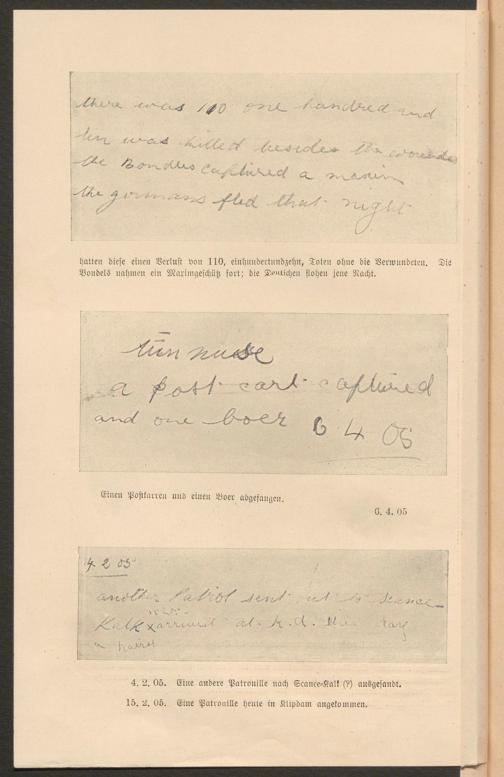 there was 110 one hundred and
ten was killed besides the wounded
the Bondles captured a maxim
the germans fled that night
hatten diese einen Verlust von 110, einhundertundzehn, Toten ohne die Verwundeten. Die
Bondels nahmen ein Maximgeschütz fort; die Deutschen flohen jene Nacht.
a post cart captured
and one boer 6 4 05
Einen Postkarren und einen Boer abgefangen.
6. 4. 05
4. 2 05
another Patrol sent out to Scance
Kalk x arrived at k. d. this day
a patrol
4. 2. 05. Eine andere Patrouille nach Scance-Kalk (?) ausgesandt.
15. 2. 05. Eine Patrouille heute in Klipdam angekommen.